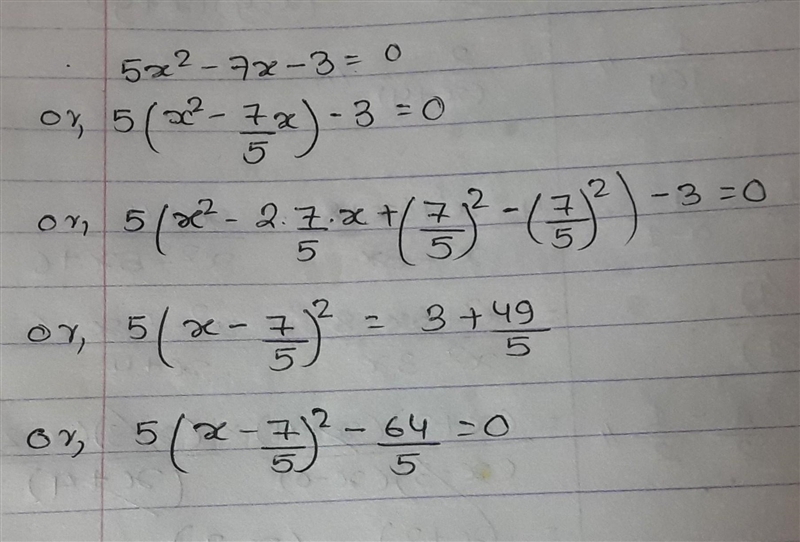 5x² - 7x - 3 = 0
or, 5(x² - 7/5 x) - 3 = 0
or, 5(x² - 2·7/5·x + (7/5)² - (7/5)²) - 3 = 0
or, 5(x - 7/5)² = 3 + 49/5
or, 5(x - 7/5)² - 64/5 = 0